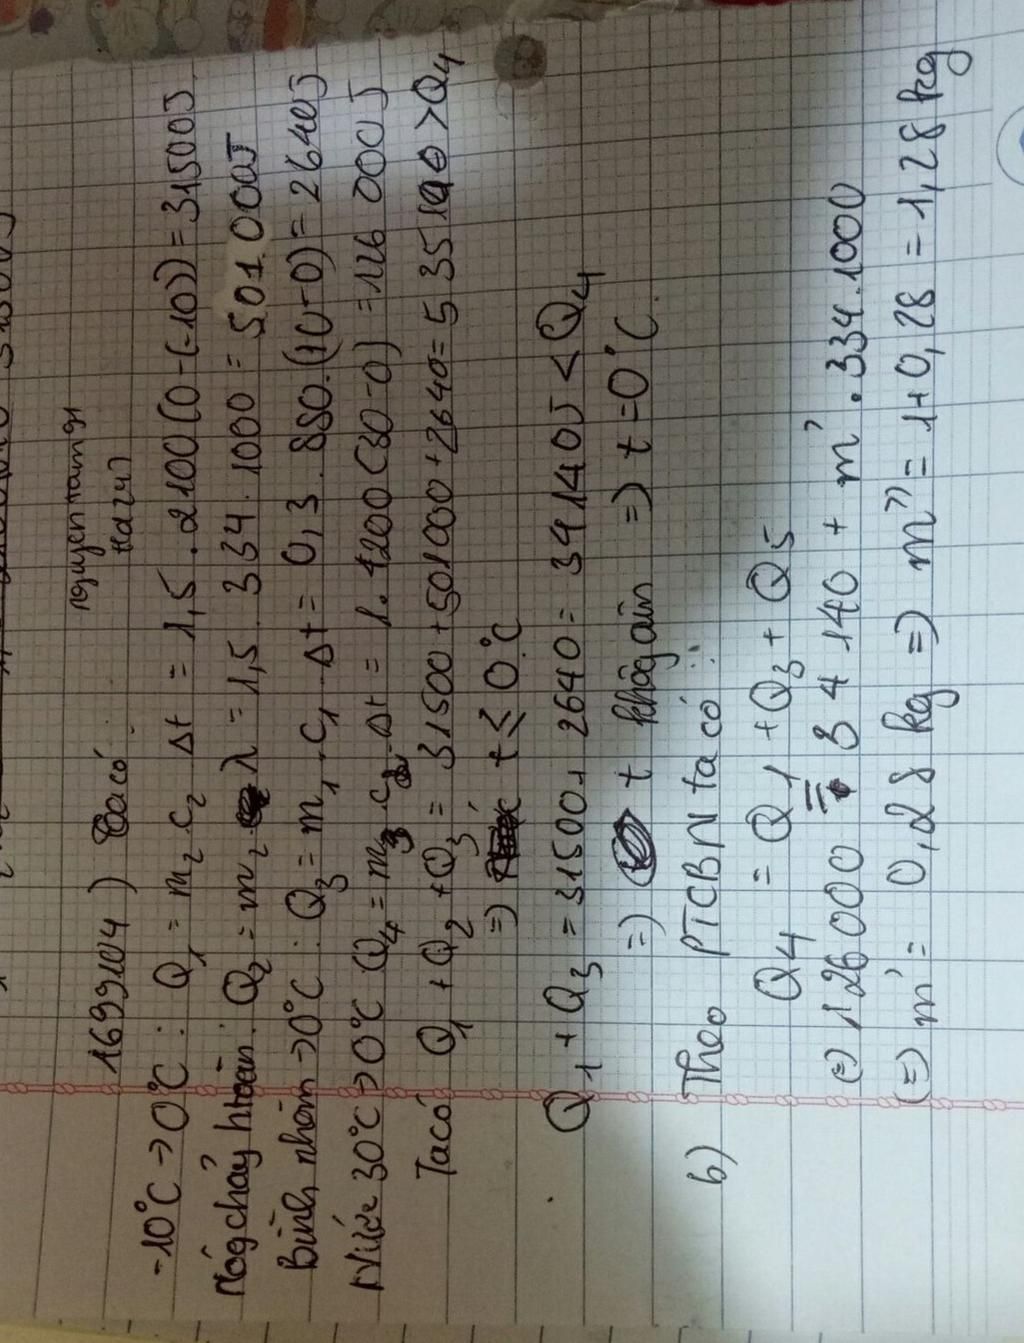 1699104) Ta có
nguyentamgi
Ha24)
-10°C → 0°C : Q1 = m2 c2 Δt = 1,5 . 2100 (0-(-10)) = 31500J
Nógchảy htoàn : Q2 = m2 λ = 1,5 . 334 . 1000 = 501 000J
Bình nhôm → 0°C : Q3 = m1 . c1 . Δt = 0,3 . 880.(10-0) = 2640J
Nước 30°C → 0°C Q4 = m3 . c3 . Δt = 1. 4200 (30-0) = 126 000J
Ta có Q1 + Q2 + Q3 = 31500 + 501000 + 2640 = 535140 > Q4
=) t ≤ 0°C
Q1 + Q3 = 31500 + 2640 = 34140J < Q4
=) t khôg âm =) t = 0°C.
b) Theo PTCBN ta có :
Q4 = Q1 + Q3 + Q5
(=) 126000 = 34140 + m' . 334.1000
(=) m' = 0,28 kg =) m'' = 1+0,28 = 1,28 kg